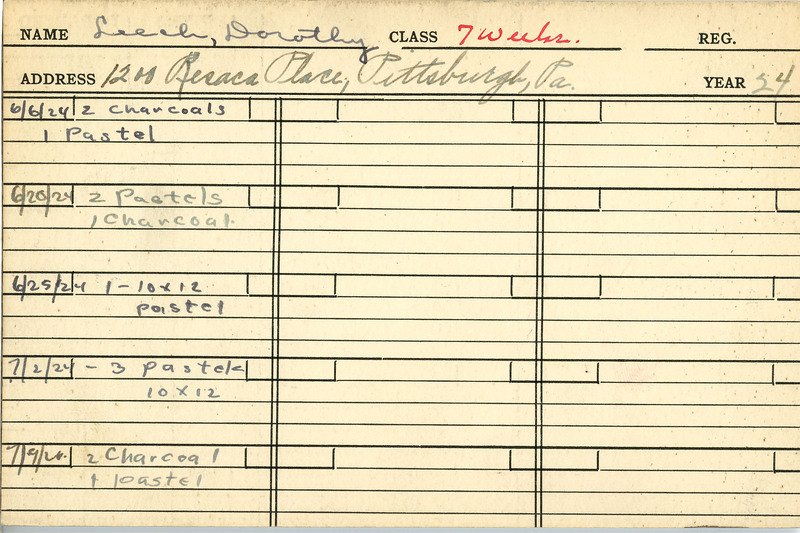 NAME Leech, Dorothy CLASS 7 Weeks. REG.
ADDRESS 1200 Resaca Place, Pittsburgh, Pa. YEAR 24
6/6/24 2 charcoals
1 Pastel
6/20/24 2 Pastels
1 Charcoal.
6/25/24 1 - 10 x 12
pastel
7/2/24 - 3 pastels
10 x 12
7/9/24. 2 Charcoal
1 pastel